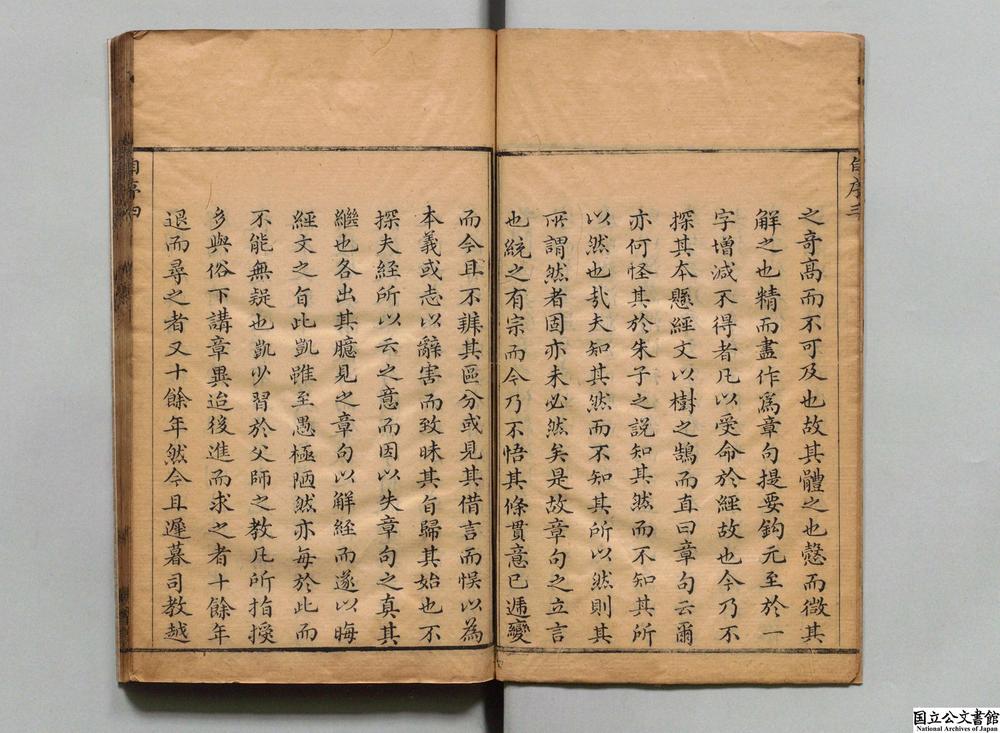 自序三
之奇高而不可及也故其體之也愨而微其
解之也精而盡作為章句提要鉤元至於一
字增減不得者凡以受命於經故也今乃不
探其本懸經文以樹之鵠而直曰章句云爾
亦何怪其於朱子之說知其然而不知其所
以然也㢤夫知其然而不知其所以然則其
所謂然者固亦未必然矣是故章句之立言
也統之有宗而今乃不悟其條貫意已遞變
而今且不辨其區分或見其借言而悮以為
本義或志以辭害而致昧其旨歸其始也不
探夫經所以云之意而因以失章句之真其
繼也各出其臆見之章句以解經而遂以晦
經文之旨此凱雖至愚極陋然亦每於此而
不能無疑也凱少習於父師之教凡所指授
多與俗下講章異迨後進而求之者十餘年
退而尋之者又十餘年然今且遲暮司教越
自序四
国立公文書館
National Archives of Japan